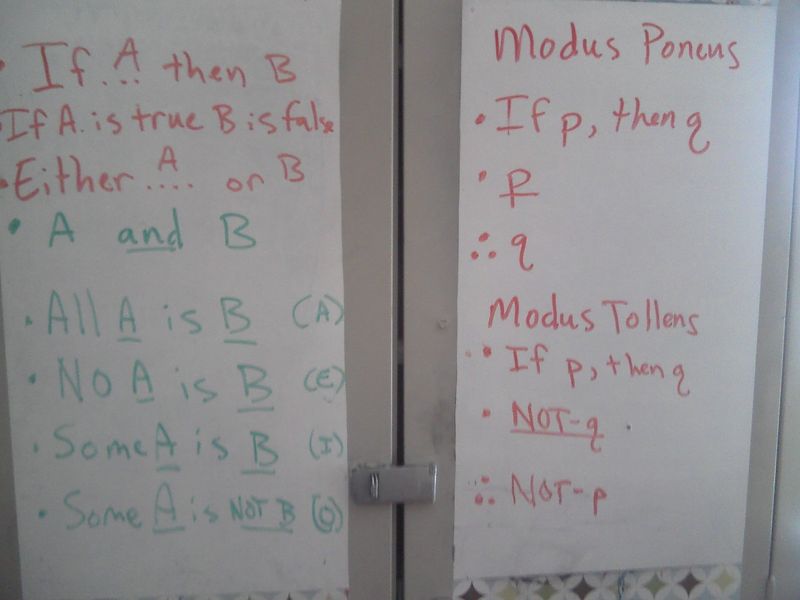 • If A... then B
If A. is true B is false
• Either A.... or B
• A and B
• All A is B (A)
• No A is B (E)
• Some A is B (I)
• Some A is NOT B (O)
Modus Ponens
• If p, then q
• p
∴ q
Modus Tollens
• If p, then q
• NOT-q
∴ NOT-p